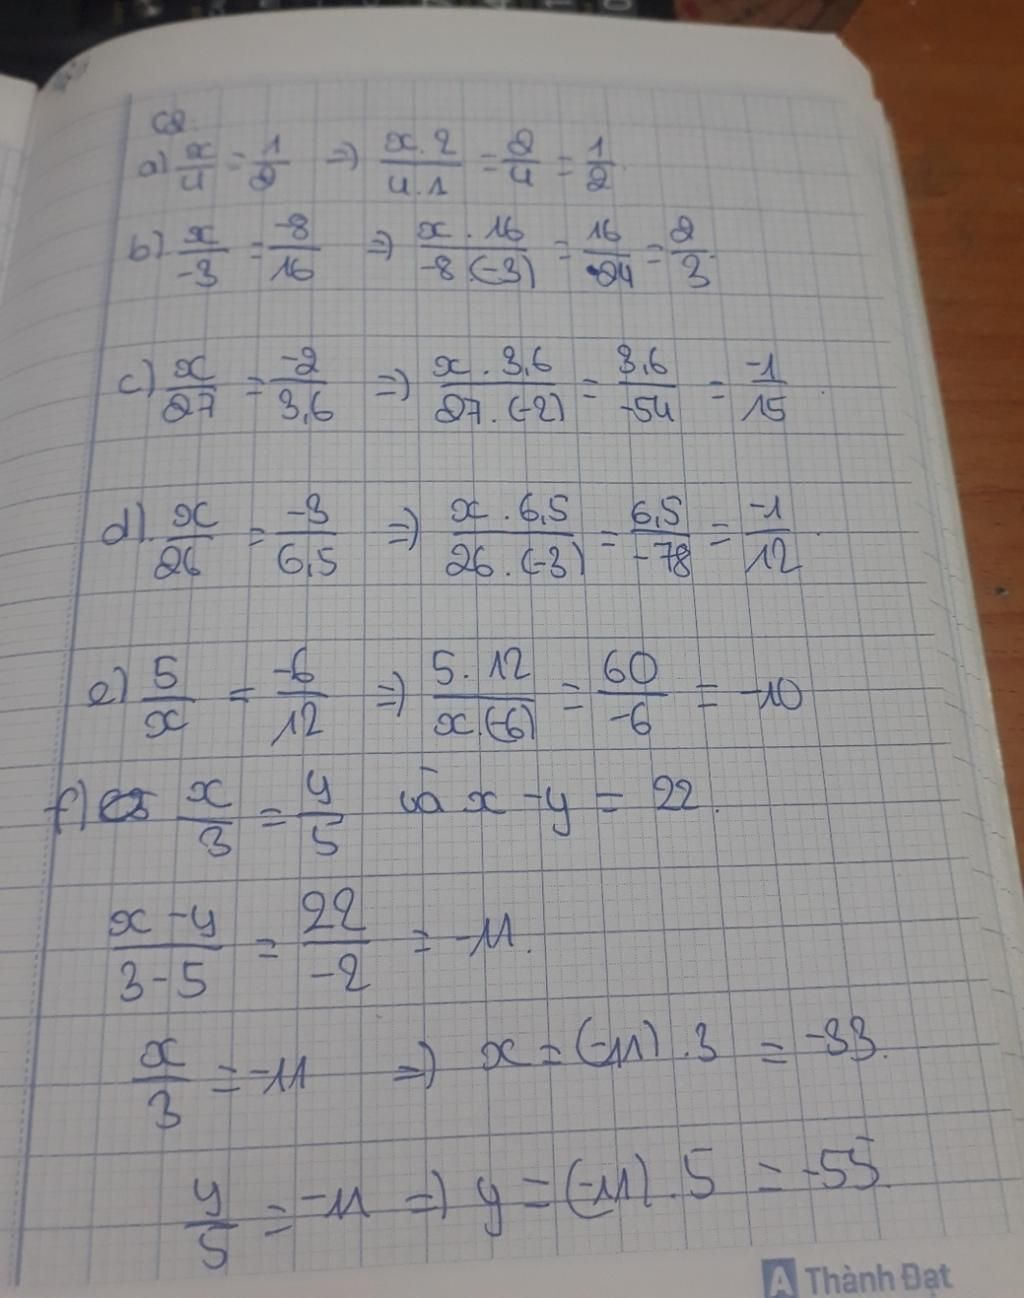 C2.
a) x/4 = 1/2 => x.2/4.1 = 2/4 = 1/2
b) x/-3 = -8/16 => x.16/-8.(-3) = 16/24 = 2/3.
c) x/27 = -2/3,6 => x.3,6/27.(-2) = 3,6/-54 = -1/15.
d) x/26 = -3/6,5 => x.6,5/26.(-3) = 6,5/-78 = -1/12.
e) 5/x = -6/12 => 5.12/x.(-6) = 60/-6 = -10
f) x/3 = y/5 và x - y = 22.
x-y/3-5 = 22/-2 = -11.
x/3 = -11 => x = (-11).3 = -33.
y/5 = -11 => y = (-11).5 = -55.
A Thành Đạt